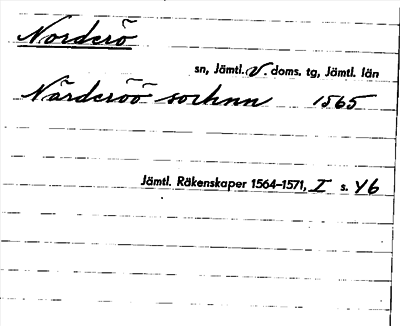 Norderö
sn, Jämtl. V. doms. tg, Jämtl. län
Närderöö sochnn 1565
Jämtl. Räkenskaper 1564–1571, I s. 46